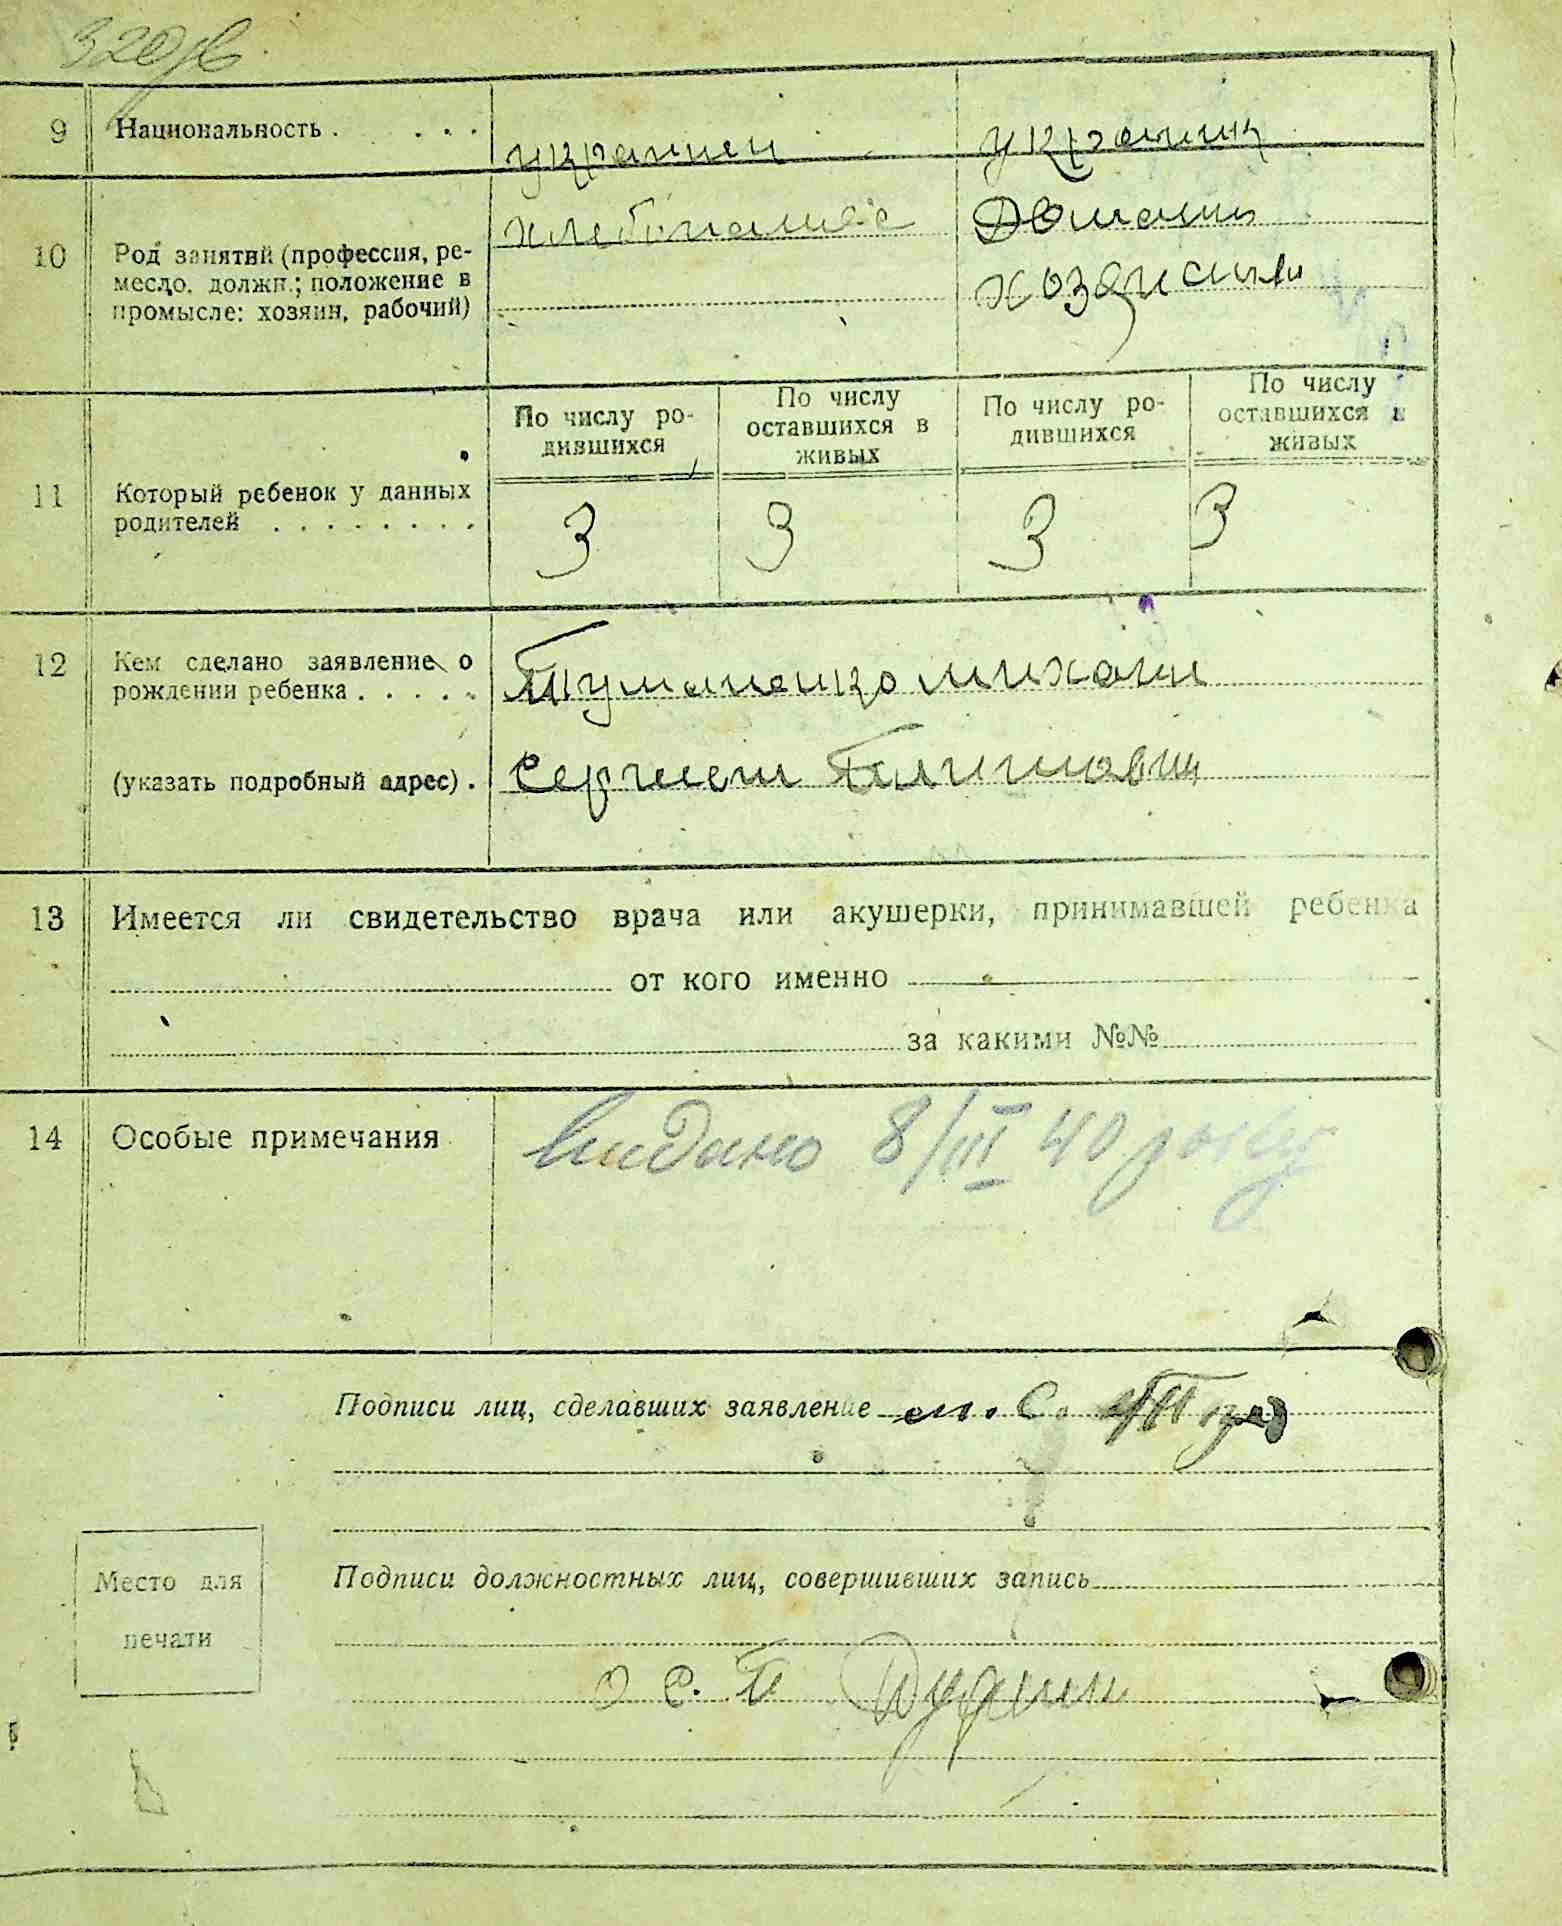 320
9 Национальность . . . . украинец украинц
10 Род занятий (профессия, ре-
месло, должн.; положение в
промысле: хозяин, рабочий)
Домашн
хозяистви
По числу ро-
дившихся
По числу
оставшихся в
живых
По числу ро-
дившихся
По числу
оставшихся в
живых
11 Который ребенок у данных
родителей . . . . . . . .
3 3 3 3
12 Кем сделано заявление о
рождении ребенка . . . . .
михаил
(указать подробный адрес) .
13 Имеется ли свидетельство врача или акушерки, принимавшей ребенка
от кого именно
за какими №№
14 Особые примечания видано 8/III 40 року
Подписи лиц, сделавших заявление
Подписи должностных лиц, совершивших запись
Место для
печати